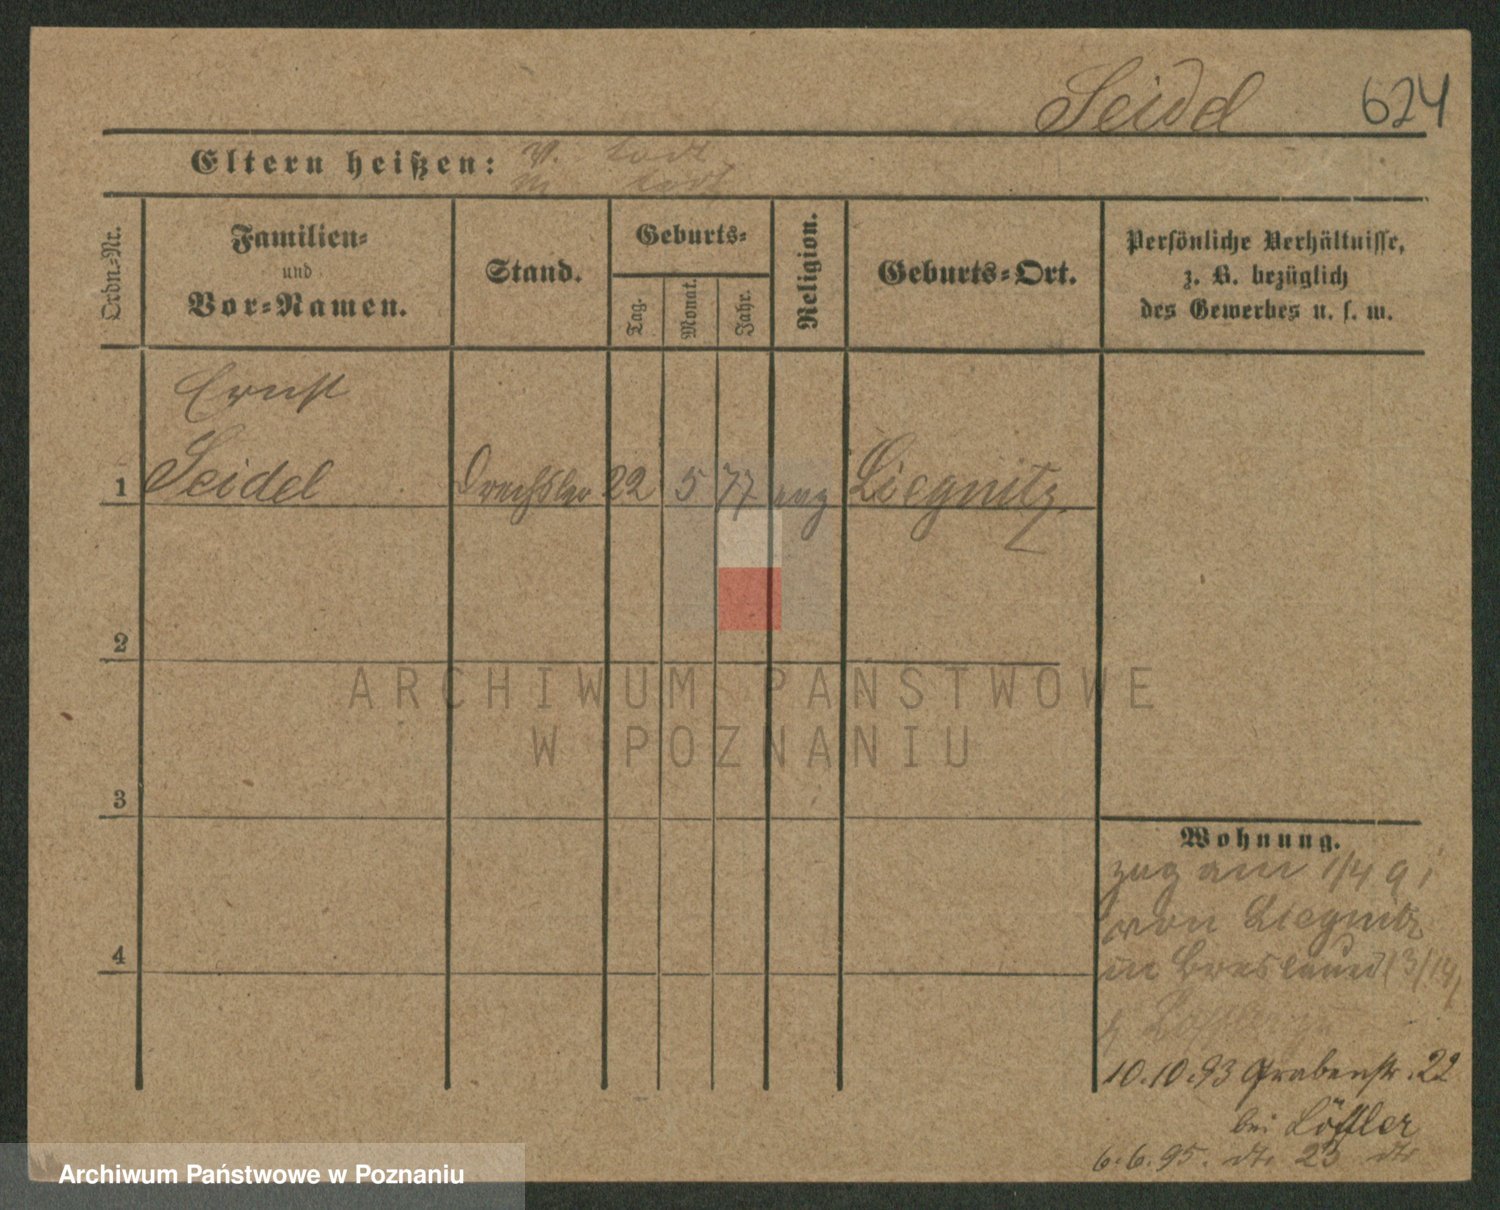 Seidel 624
Eltern heißen: V. todt
M. todt
Ordn=Nr.
Familien=
und
Vor=Namen.
Stand.
Geburts=
Tag.
Monat.
Jahr.
Religion.
Geburts=Ort.
Persönliche Verhältnisse,
z. B. bezüglich
des Gewerbes u. s. w.
Ernst
1 Seidel Drechsler 22 5 77 evg Liegnitz
2
3
4
ARCHIWUM PAŃSTWOWE
W POZNANIU
Wohnung.
zug am 1/4 91
von Liegnitz
in 13/14
10.10.93 Grabenstr. 22
bei Löffler
6.6.95. dto 23 dto
Archiwum Państwowe w Poznaniu